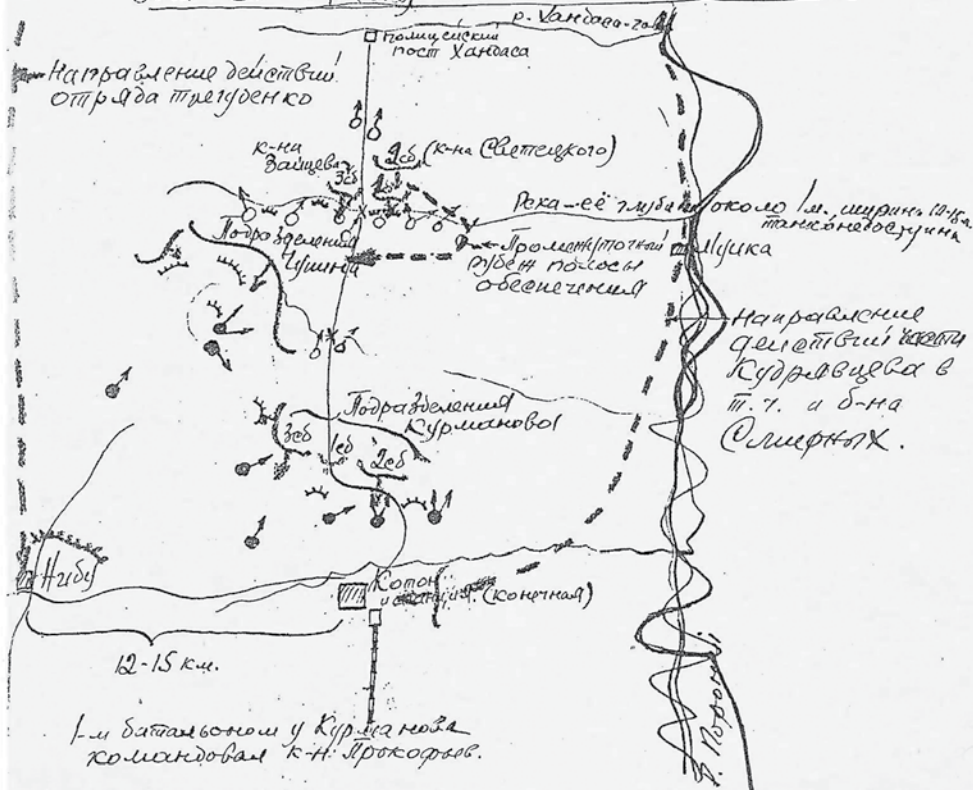 р. Хандаса-
полицейский
пост Хандаса
Направление действий
отряда Трегубенко
к-на
Зайцева
3сб
2сб (к-на Светецкого)
1сб
Река—её глубина около 1м. ширина
танконедоступна
Подразделения
Промежуточный
рубеж полосы
обеспечения
Муйка
Направление
действий части
Кудрявцева в
т.ч. и б-на
Смирных.
Подразделения
Курманова
3сб
1сб
2сб
Нибу
Котон
станция (конечная)
12-15 км.
р. Поронай
1-м батальоном у Курманова
командовал к-н Прокофьев.